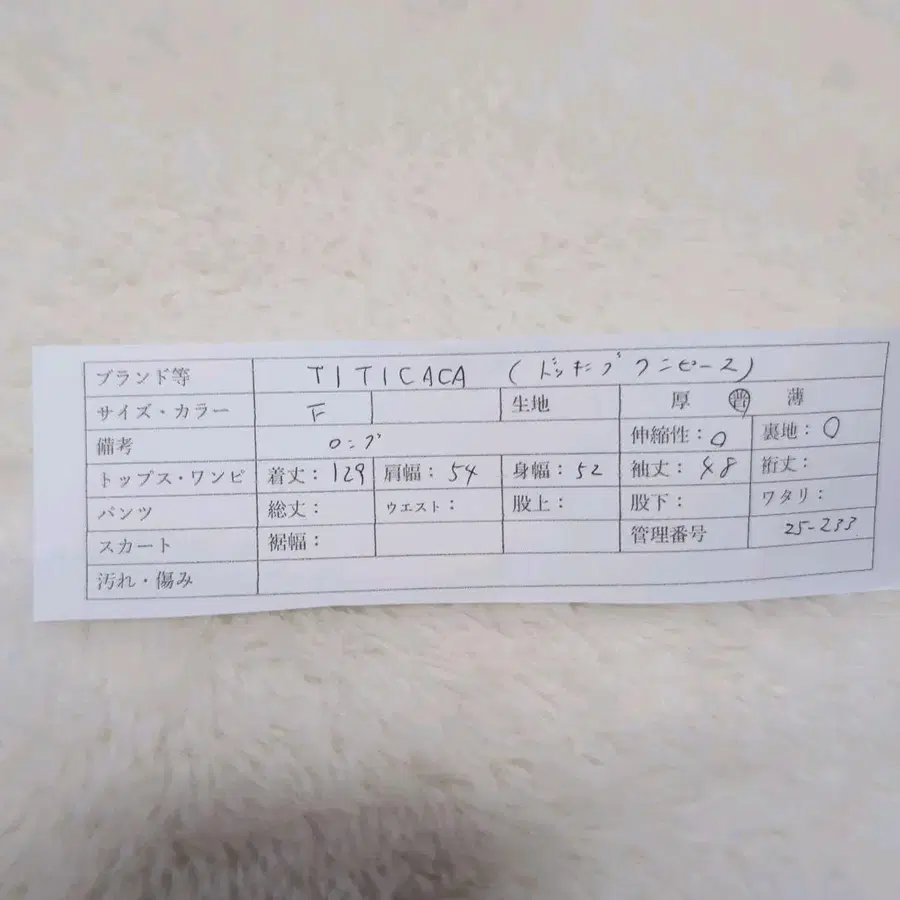 ブランド等 TITICACA (ドッキングワンピース)
サイズ・カラー F 生地 厚 普 薄
備考 ロング 伸縮性:〇 裏地:〇
トップス・ワンピ 着丈:129 肩幅:54 身幅:52 袖丈:48 裄丈:
パンツ 総丈: ウエスト: 股上: 股下: ワタリ:
スカート 裾幅: 管理番号 25-233
汚れ・傷み